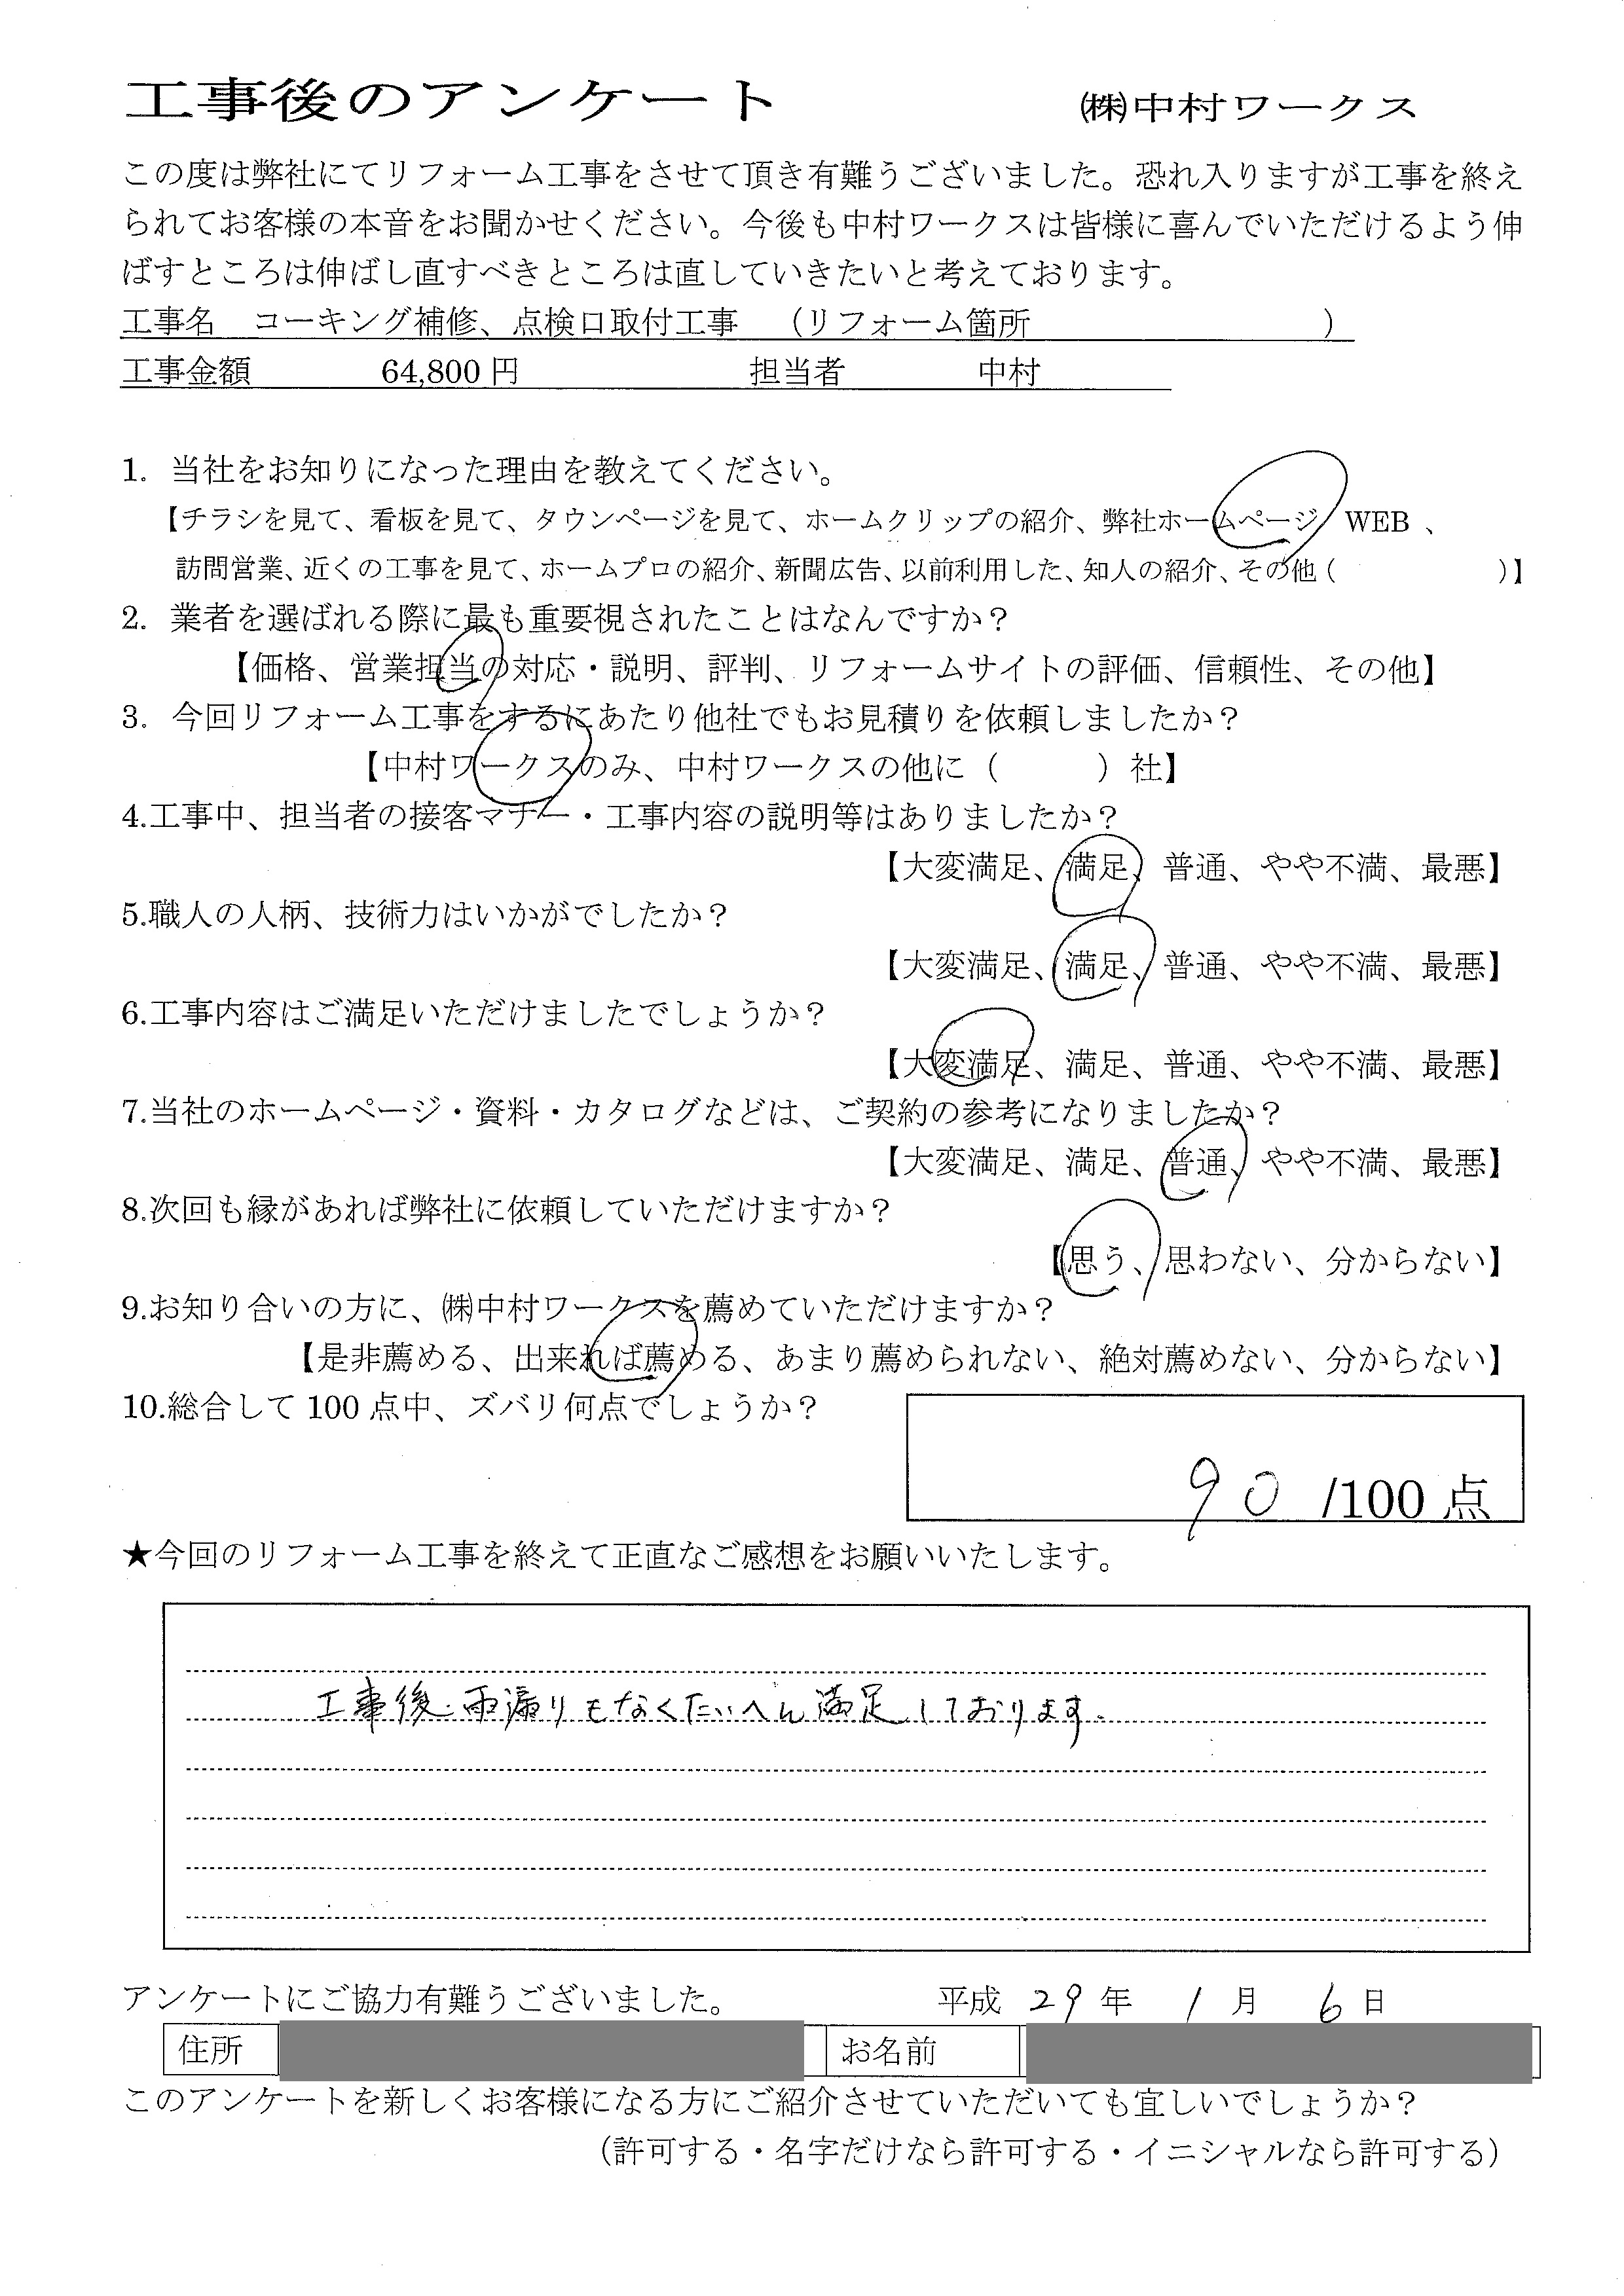 工事後のアンケート ㈱中村ワークス
この度は弊社にてリフォーム工事をさせて頂き有難うございました。恐れ入りますが工事を終え
られてお客様の本音をお聞かせください。今後も中村ワークスは皆様に喜んでいただけるよう伸
ばすところは伸ばし直すべきところは直していきたいと考えております。
工事名 コーキング補修、点検口取付工事 （リフォーム箇所 ）
工事金額 64,800 円 担当者 中村
1. 当社をお知りになった理由を教えてください。
【チラシを見て、看板を見て、タウンページを見て、ホームクリップの紹介、弊社ホームページ WEB 、
訪問営業、近くの工事を見て、ホームプロの紹介、新聞広告、以前利用した、知人の紹介、その他（ ）】
2. 業者を選ばれる際に最も重要視されたことはなんですか？
【価格、営業担当の対応・説明、評判、リフォームサイトの評価、信頼性、その他】
3. 今回リフォーム工事をするにあたり他社でもお見積りを依頼しましたか？
【中村ワークスのみ、中村ワークスの他に（ ）社】
4.工事中、担当者の接客マナー・工事内容の説明等はありましたか？
【大変満足、満足、普通、やや不満、最悪】
5.職人の人柄、技術力はいかがでしたか？
【大変満足、満足、普通、やや不満、最悪】
6.工事内容はご満足いただけましたでしょうか？
【大変満足、満足、普通、やや不満、最悪】
7.当社のホームページ・資料・カタログなどは、ご契約の参考になりましたか？
【大変満足、満足、普通、やや不満、最悪】
8.次回も縁があれば弊社に依頼していただけますか？
【思う、思わない、分からない】
9.お知り合いの方に、㈱中村ワークスを薦めていただけますか？
【是非薦める、出来れば薦める、あまり薦められない、絶対薦めない、分からない】
10.総合して 100 点中、ズバリ何点でしょうか？
90 /100 点
★今回のリフォーム工事を終えて正直なご感想をお願いいたします。
工事後、雨漏りもなくたいへん満足しております。
アンケートにご協力有難うございました。 平成 29 年 1 月 6 日
住所 お名前
このアンケートを新しくお客様になる方にご紹介させていただいても宜しいでしょうか？
（許可する・名字だけなら許可する・イニシャルなら許可する）